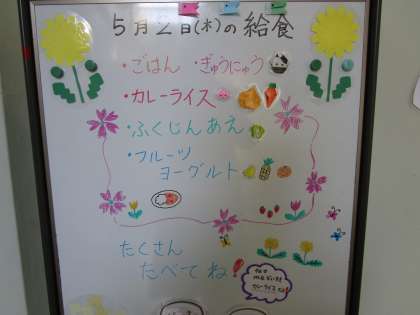 5月2日(木)の給食
・ごはん ・ぎゅうにゅう
・カレーライス
・ふくじんあえ
・フルーツ
ヨーグルト
たくさん
たべてね!
カレーライス